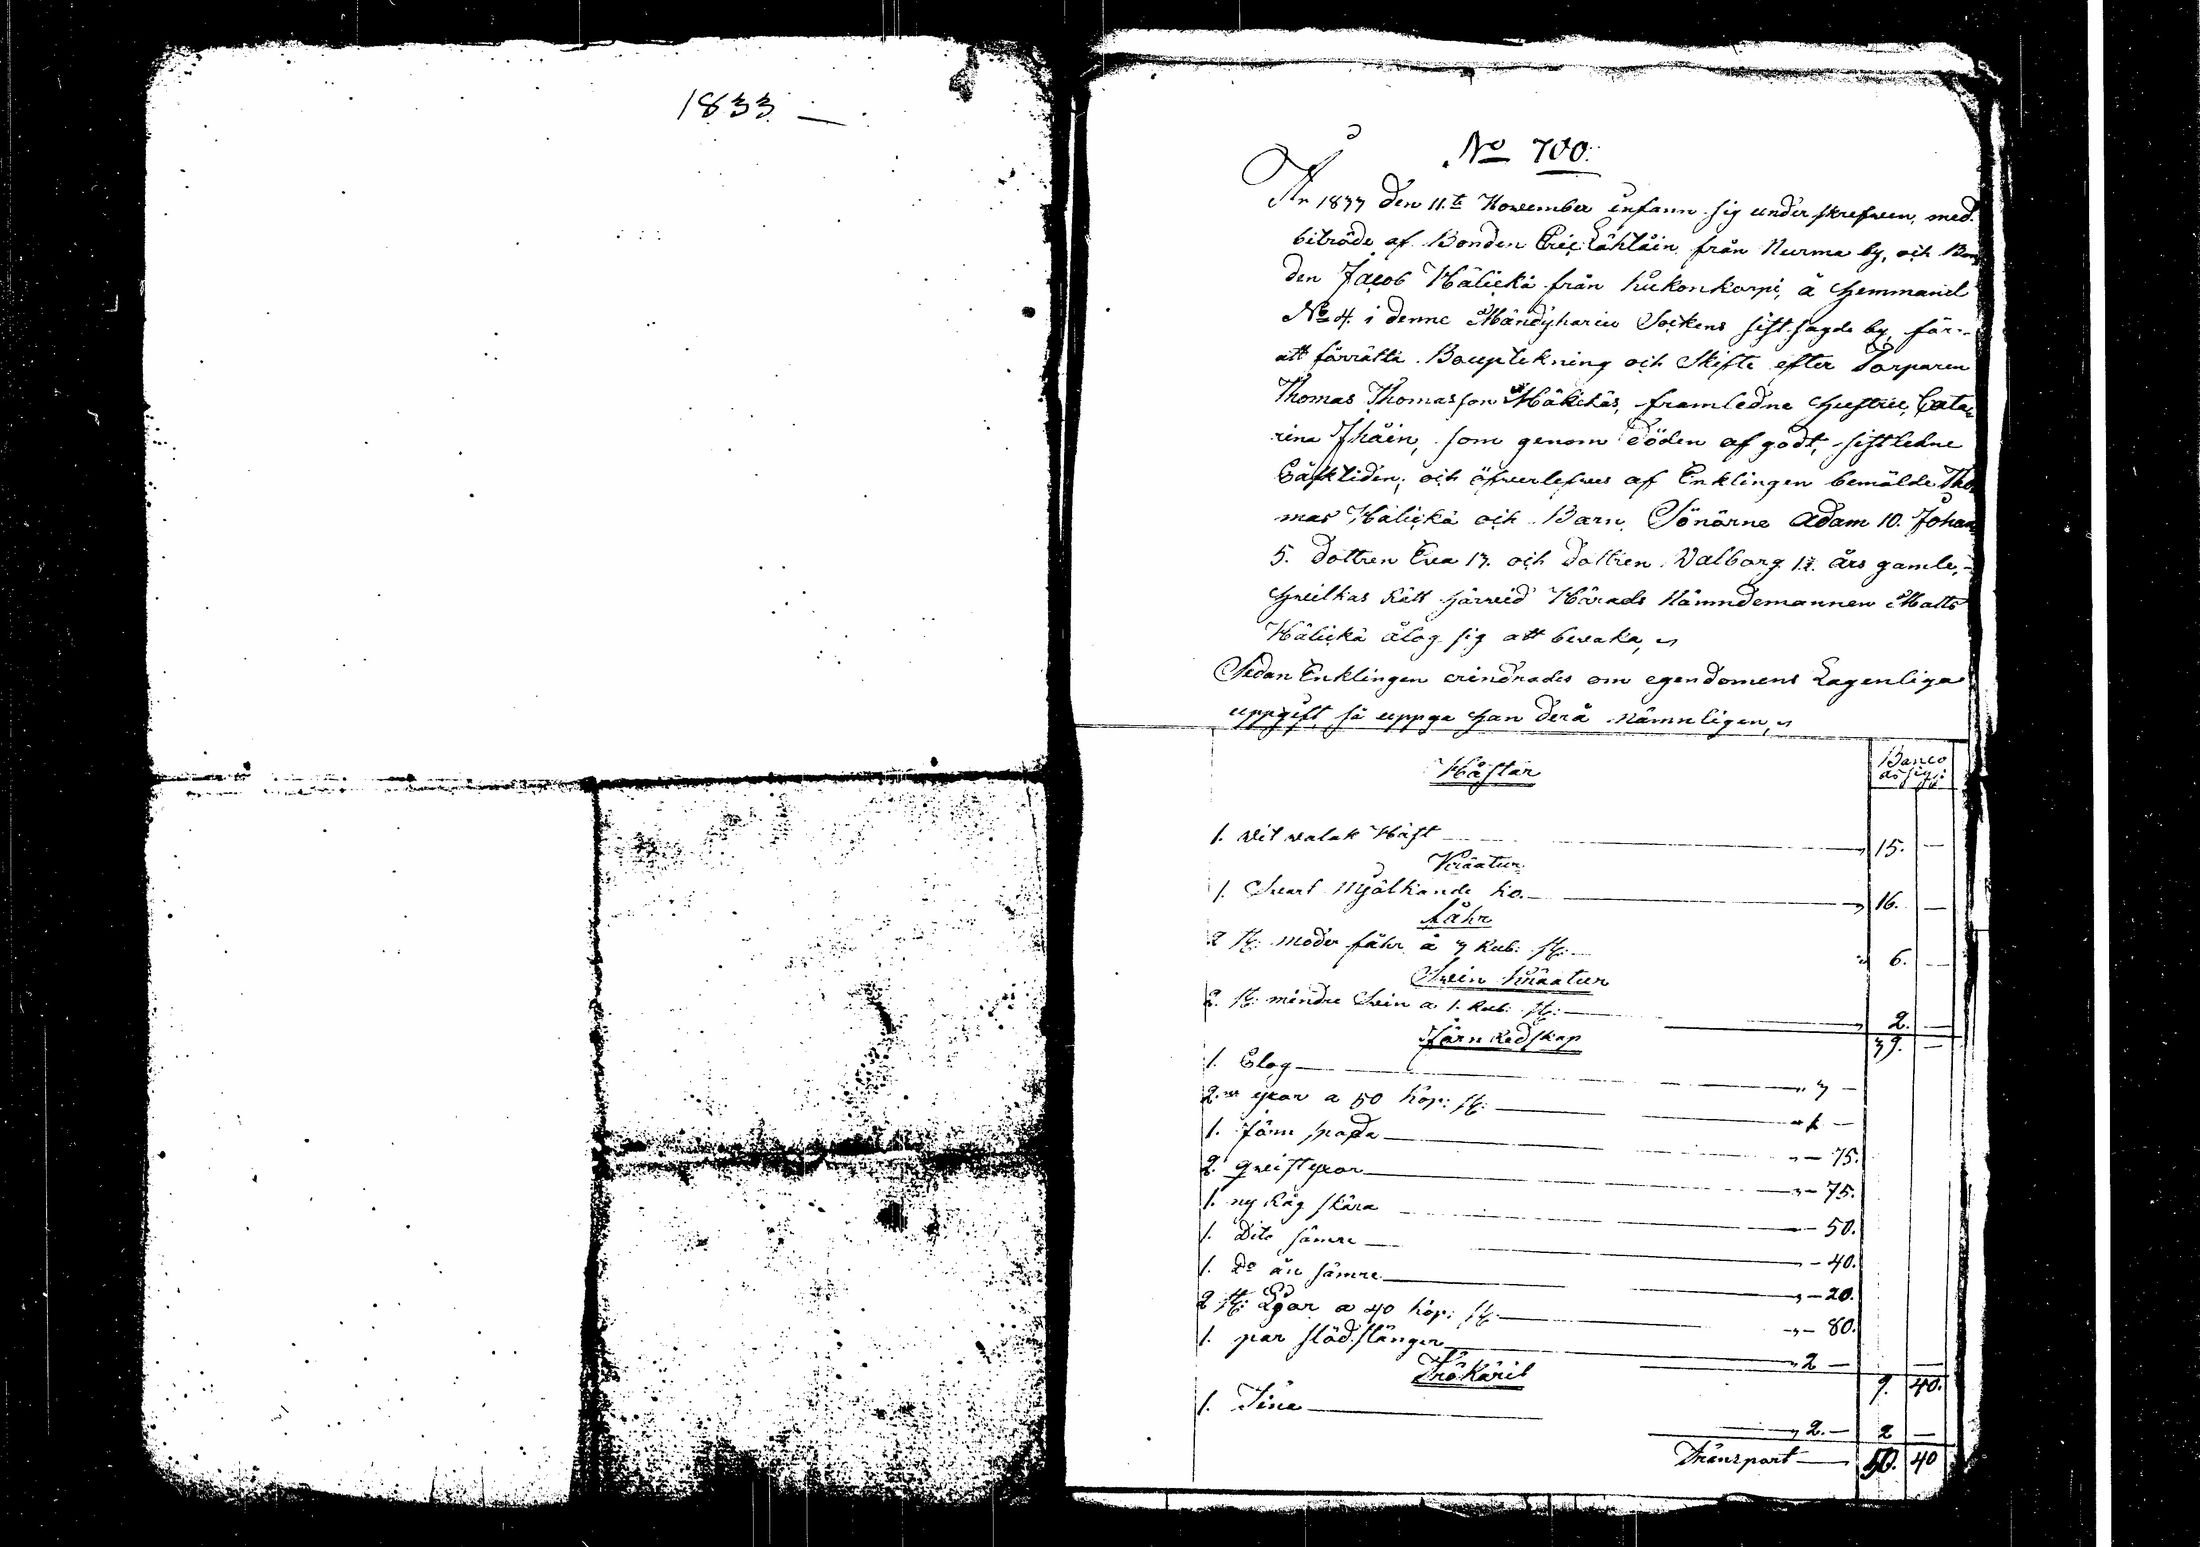 1833 —
No 700.
År 1833 den 11.te November infann sig underskrefwen, med
biträde af Bonden Eric Lähtäin från Nurma by, och Bon
den Jacob Hälickä från Liukonkorpi, å Hemmanet
No 4. i denne Mändyharju Sockens sistsagde by, för
att förrätta Bouptekning och Skifte efter Torparen
Thomas Thomasson Hälickäs, framledne Hustru, Cata
rina Ihäin, som genom döden afgodt, sistledne
och öfwerlefwes af Enklingen bemälde Tho
mas Hälickä och Barn, Sönärne Adam 10. Johan
5. dottren Ewa 13. och dottren Walborg 12. års gamle,
Hwilkas Rätt härwid Härads Nämndemannen Matts
Hälickä åtog sig att bewaka,
Sedan Enklingen erindrades om egendomens Lagenliga
uppgift, så uppga Han derå nämnligen,
Banco
assig:
Hästar
1. wit walak Häst — 15. —
Kräatur
1. Swart Mjälkande ko. — 16. —
fåhr
2 st: moder fåhr à 3 Rub: st: — 6. —
Swin Kräatur
2. st: mindre Swin a 1. Rub: st: — 2. —
39. —
Järn Redskap
1. Plog — 3 —
2. yxor a 50 kop: st: — 1 —
1. Järn spada — 75.
2. qwistyxor — 75.
1. ny Råg skära — 50.
1. Dito sämre — 40.
1. Do än sämre — 20.
2 st: Liar a 40 kop: st: — 80.
1. par städ stänger — 2 — —
Träkäril 9. 40.
1. Tina — 2. — 2 —
Transport — 50. 40